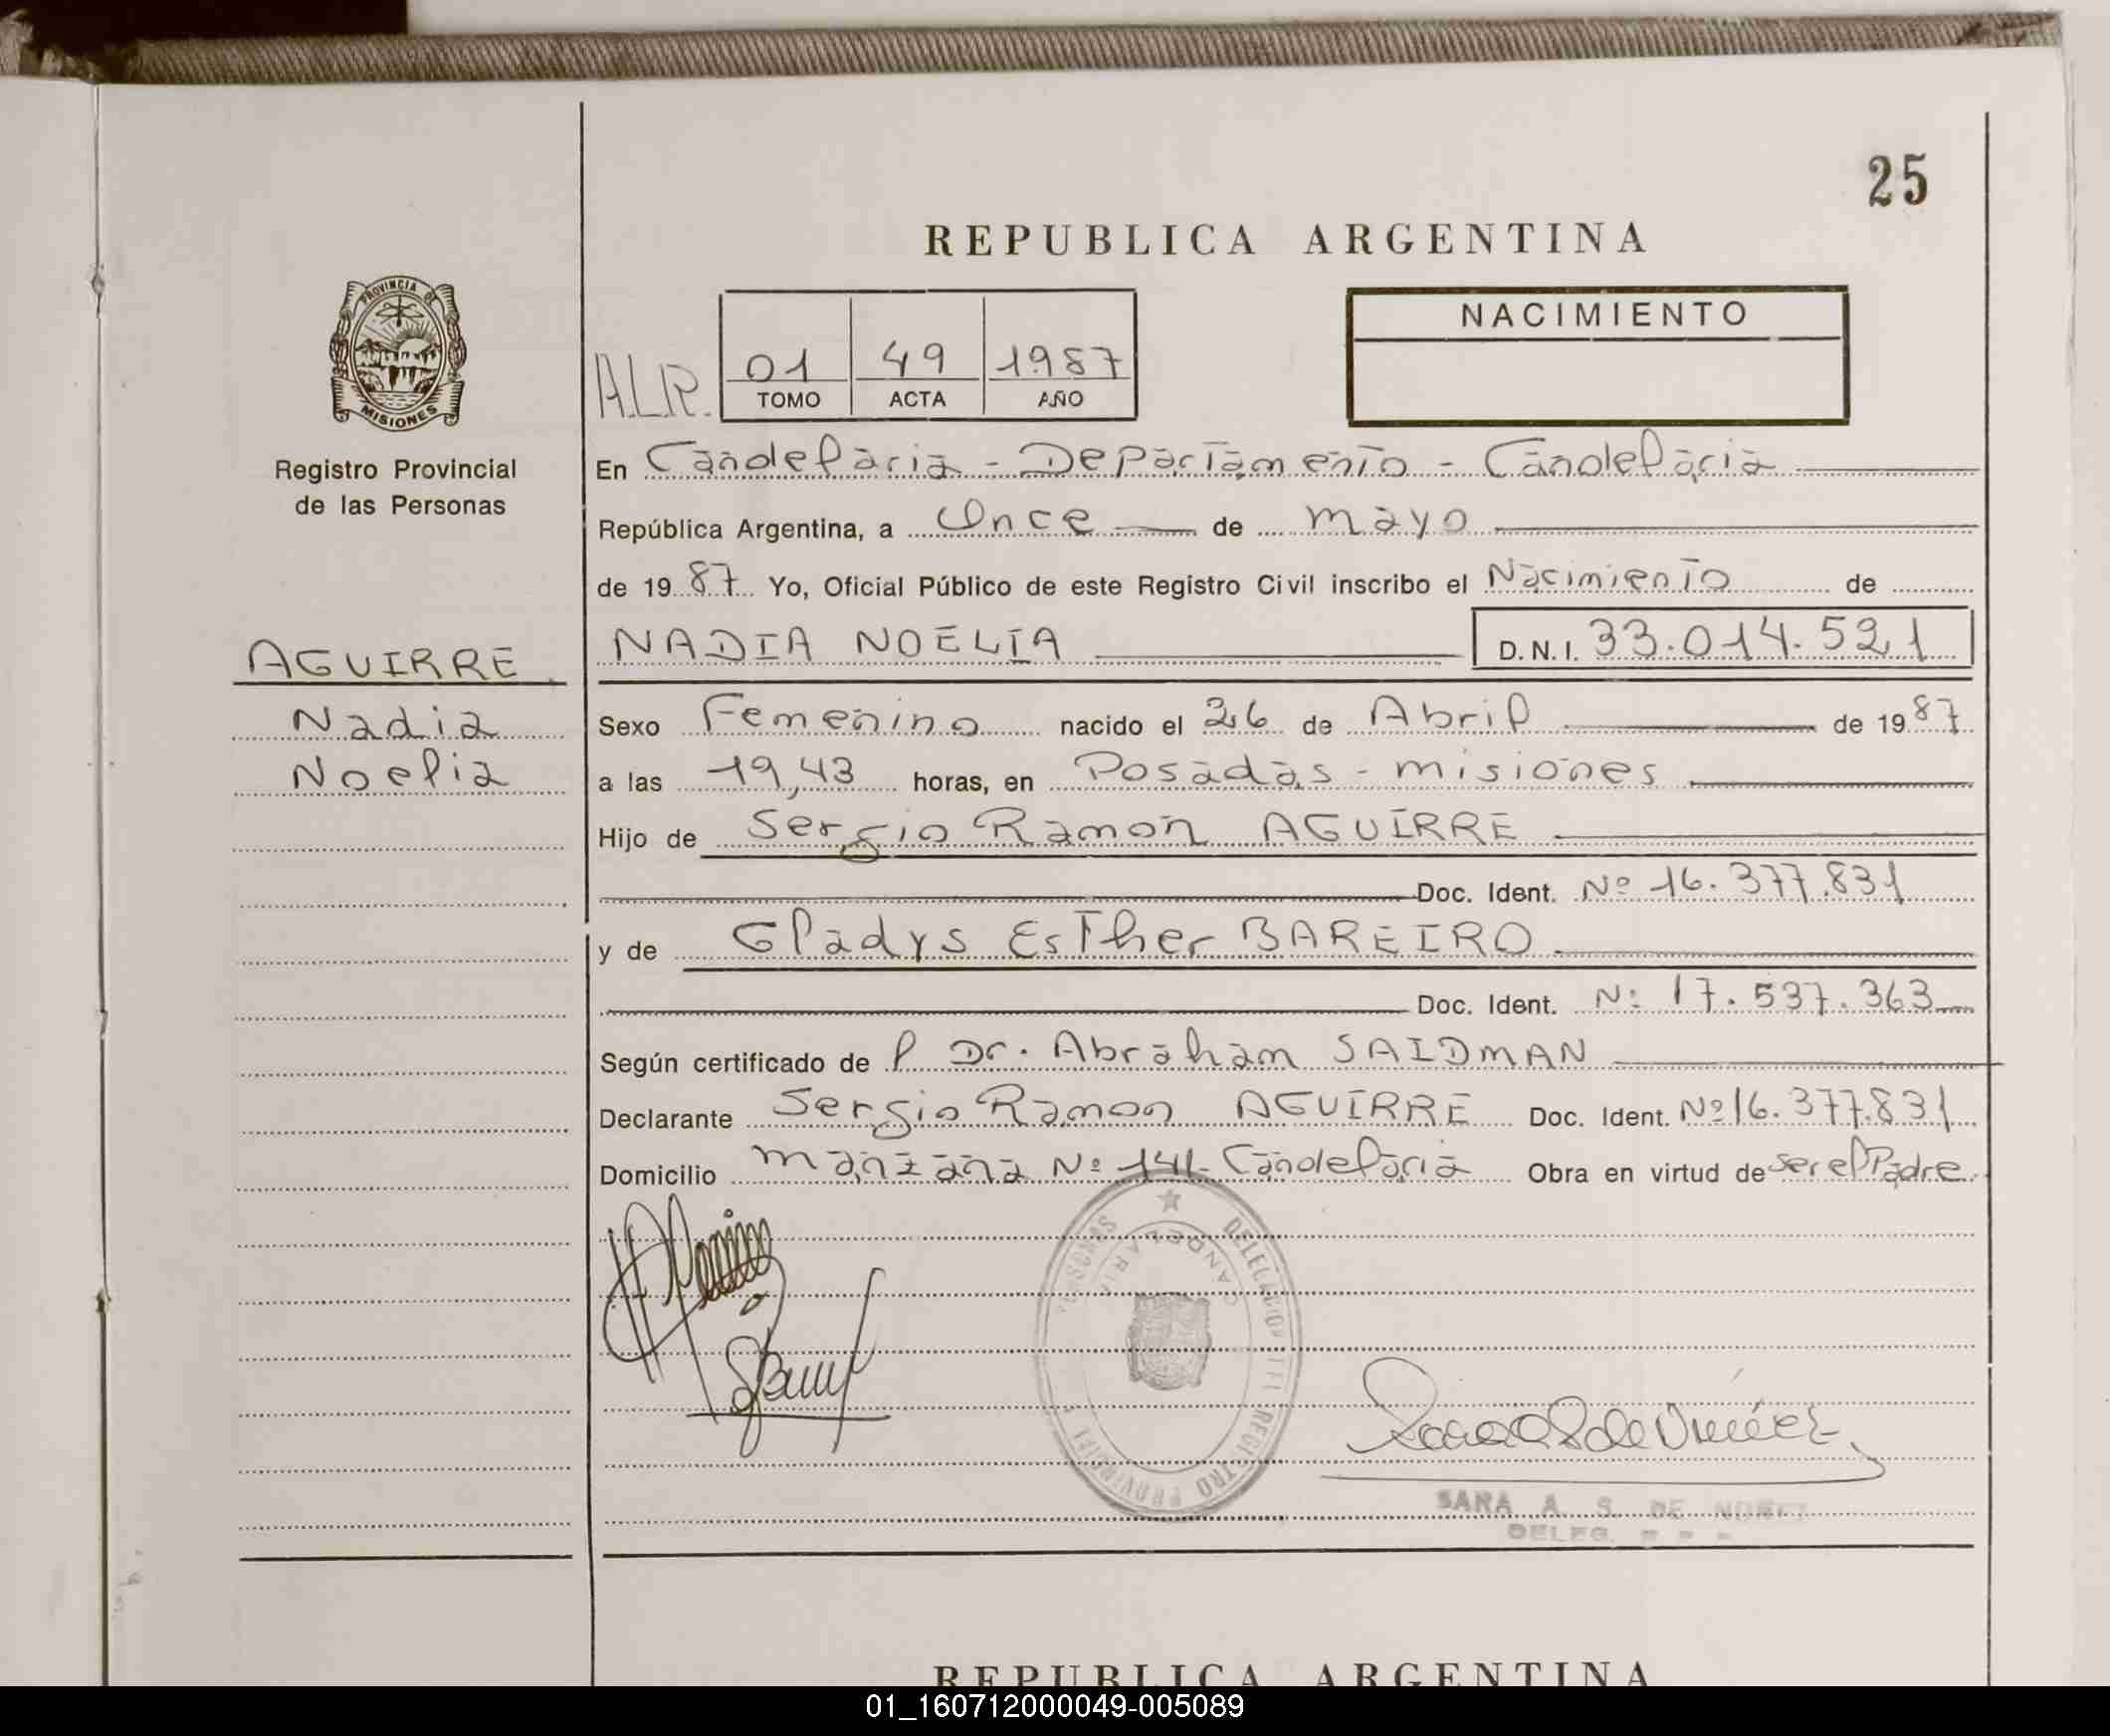 25
REPUBLICA ARGENTINA
PROVINCIA DE
MISIONES
Registro Provincial
de las Personas
NACIMIENTO
A.L.R.
01 49 1987
TOMO ACTA AÑO
En Candelaria - Departamento - Candelaria
República Argentina, a Once de mayo
de 19 87 Yo, Oficial Público de este Registro Civil inscribo el Nacimiento de
AGUIRRE
Nadia
Noelia
NADIA NOELIA D.N.I. 33.014.521
Sexo Femenino nacido el 26 de Abril de 19 87
a las 19,43 horas, en Posadas - misiones
Hijo de Sergio Ramon AGUIRRE
Doc. Ident. Nº 16.377.831
y de Gladys Esther BAREIRO
Doc. Ident. Nº 17.537.363
Según certificado de l Dr. Abraham SAIDMAN
Declarante Sergio Ramon AGUIRRE Doc. Ident. Nº 16.377.831
Domicilio manzana Nº 141- Candelaria Obra en virtud de ser el Padre
CANDELARIA
SARA A. S. DE NUÑEZ
DELEG.
REPUBLICA ARGENTINA
01_160712000049-005089